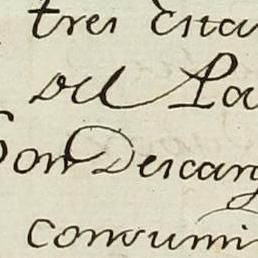 tres Esta
del Pa
Son Descarg
consumi